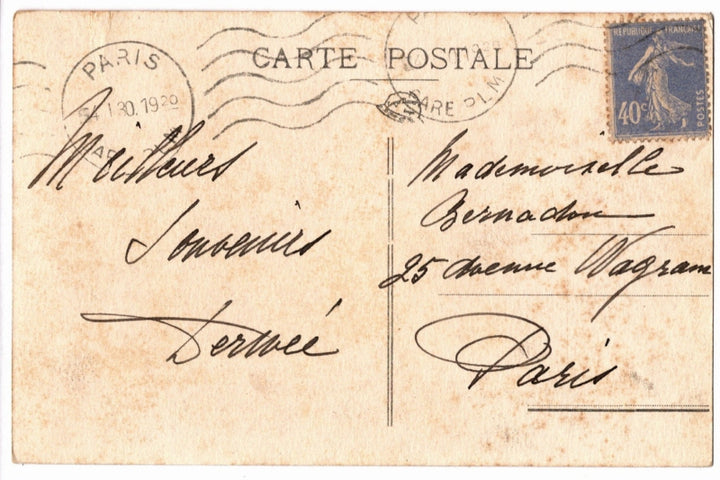 CARTE POSTALE
PARIS
1 30. 19 20
GARE P.L.M
REPUBLIQUE FRANÇAISE
40c
POSTES
Meilleurs
Souvenirs
Mademoiselle
Bernadou
25 avenue Wagram
Paris